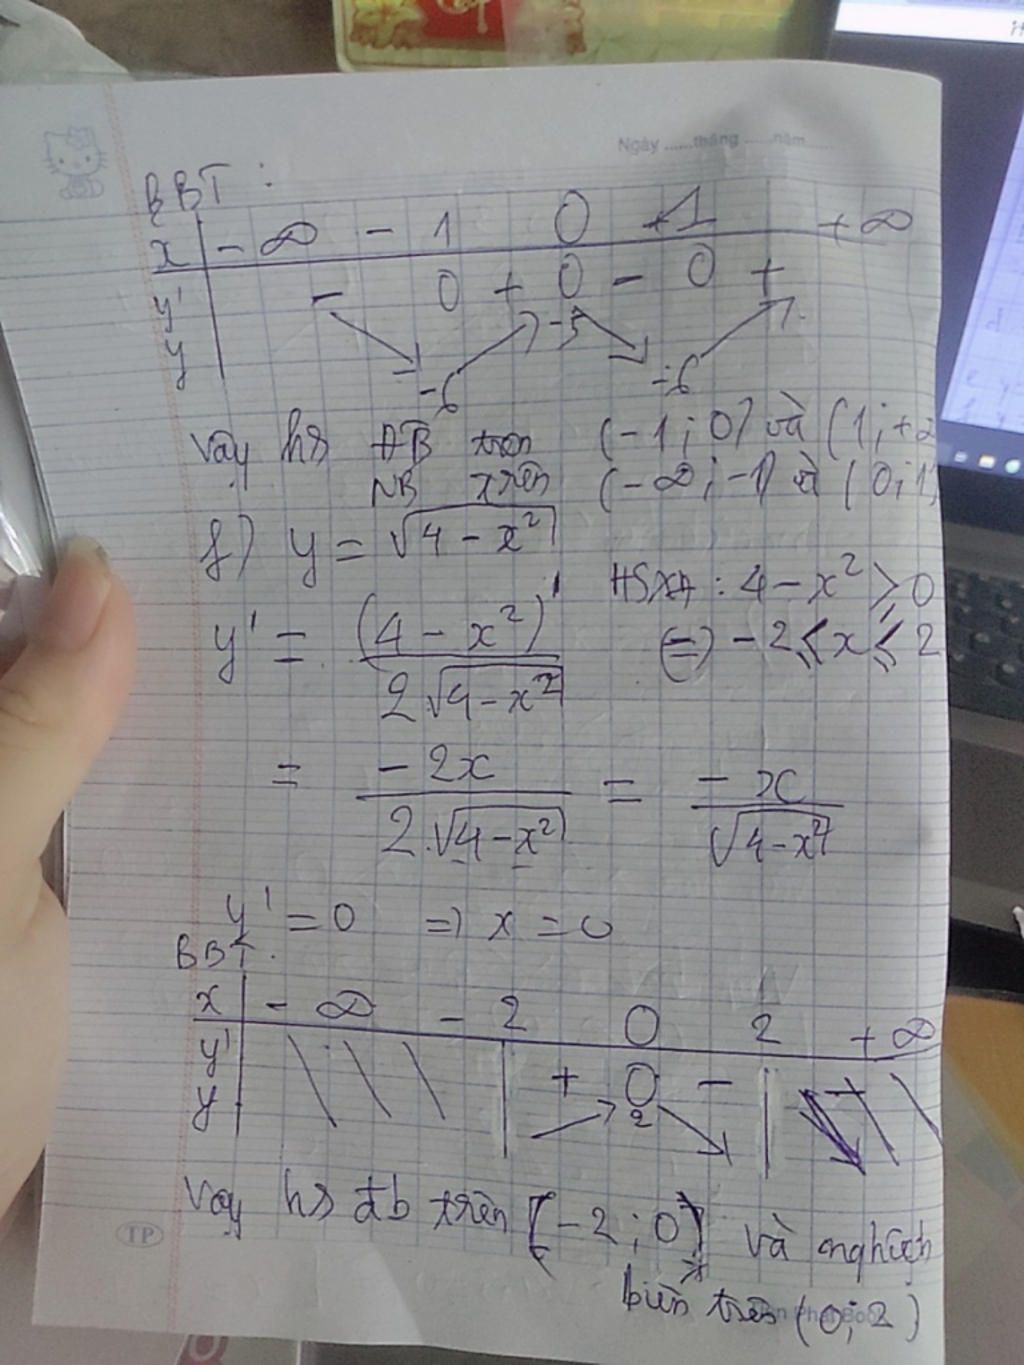 Ngày ......tháng ......năm......
BBT :
x | -∞ -1 0 +1 +∞
y' | - 0 + 0 - 0 +
y | -6 -5 -6
Vậy hs ĐB trên (-1; 0) và (1; +
NB trên (-∞; -1) và (0; 1)
f) y = √(4 - x²)
HSXĐ : 4 - x² ≥ 0
y' = (4 - x²)' / 2√(4 - x²)
(=) -2 ≤ x ≤ 2
= -2x / 2.√(4 - x²) = -x / √(4 - x²)
y' = 0 => x = 0
BBT:
x | -∞ -2 0 2 +∞
y' | + 0 -
y | 2
Vậy hs đb trên (-2; 0) và nghịch
biến trên (0; 2)
TP